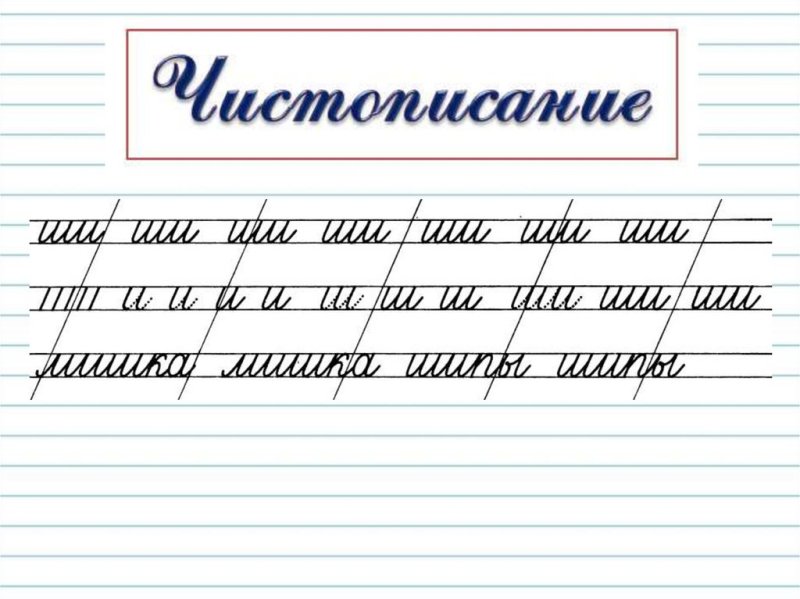 Чистописание
ши ши ши ши ши ши ши
и и и и ш ш ш ши ши ши
мишка мишка шипы шипы